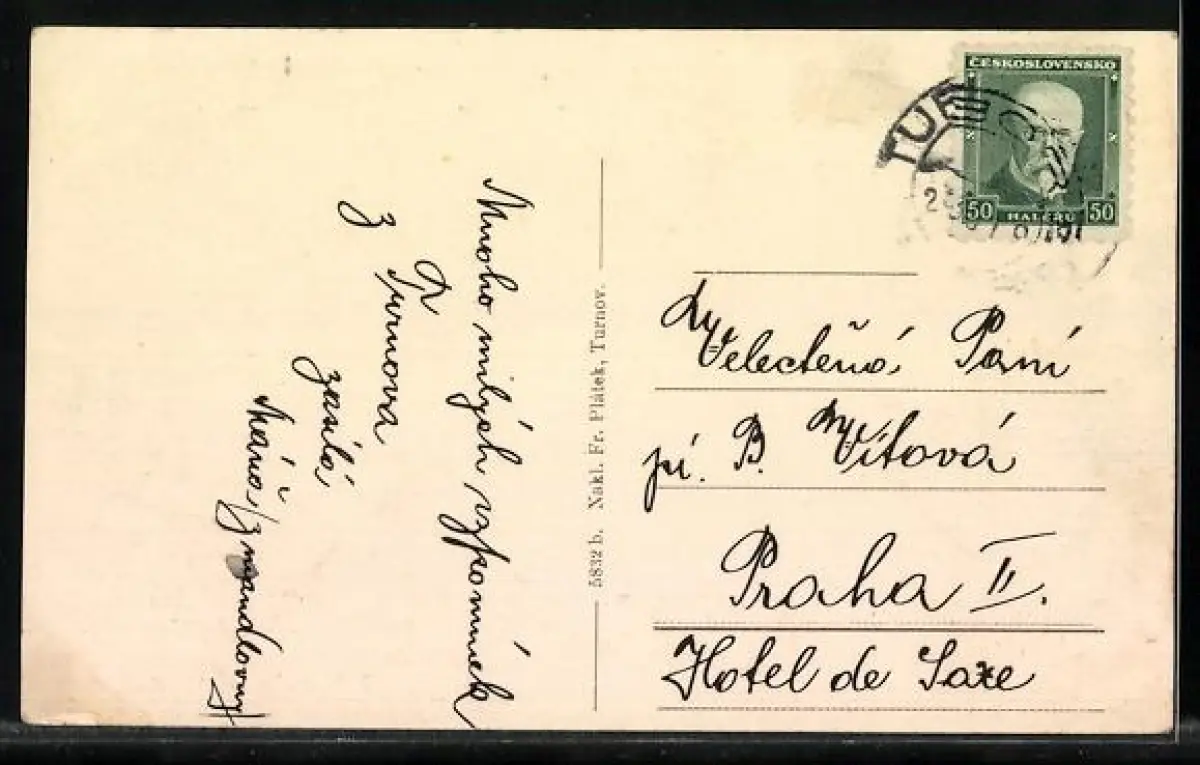 Mnoho milých vzpomínek
z Turnova
zasílá
Máňa /z mandlovny/
5832 b. Nakl. Fr. Plátek, Turnov.
ČESKOSLOVENSKO
50 HALÉŘŮ 50
TUR
Velectěná Paní
pí. B. Vítová
Praha II.
Hotel de Saxe